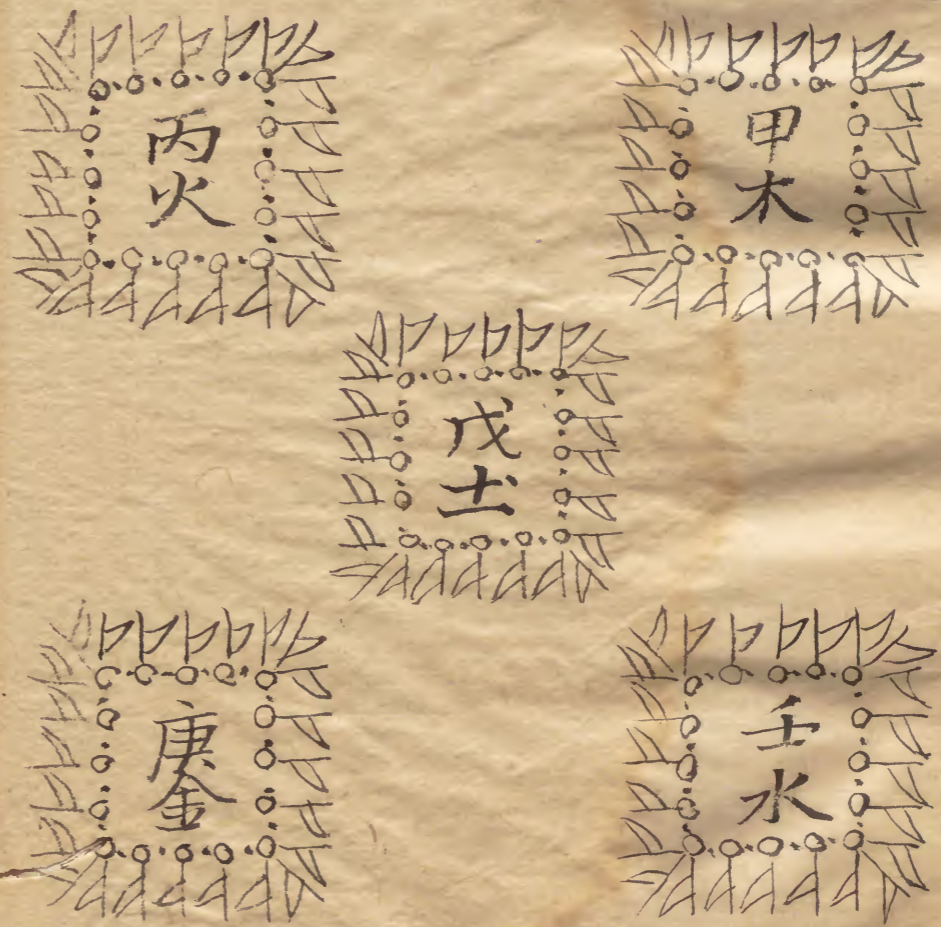 甲
木
丙
火
戊
土
壬
水
庚
金